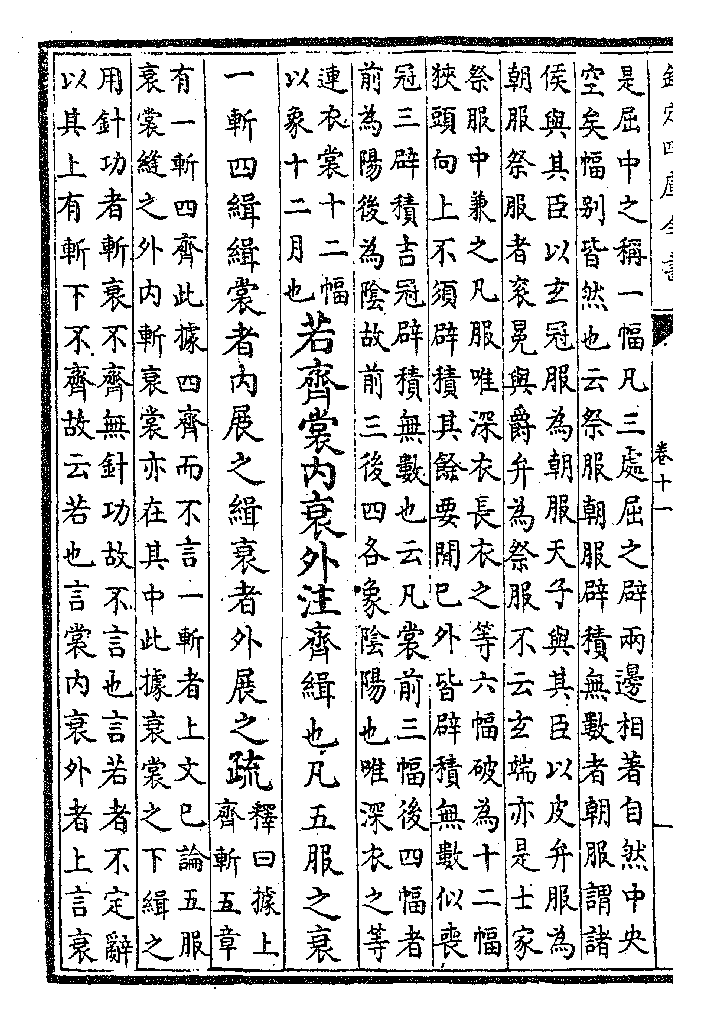 欽定四庫全書
卷十一
是屈中之稱一幅凡三處屈之辟兩邊相著自然中央
空矣幅别皆然也云祭服朝服辟積無數者朝服謂諸
侯與其臣以玄冠服為朝服天子與其臣以皮弁服為
朝服祭服者衮冕與爵弁為祭服不云玄端亦是士家
祭服中兼之凡服唯深衣長衣之等六幅破為十二幅
狹頭向上不須辟積其餘要閒已外皆辟積無數似喪
冠三辟積吉冠辟積無數也云凡裳前三幅後四幅者
前為陽後為陰故前三後四各象陰陽也唯深衣之等
連衣裳十二幅
以象十二月也
若齊裳内衰外注齊緝也凡五服之衰
一斬四緝緝裳者内展之緝衰者外展之疏
釋曰據上
齊斬五章
有一斬四齊此據四齊而不言一斬者上文已論五服
衰裳縫之外内斬衰裳亦在其中此據衰裳之下緝之
用針功者斬衰不齊無針功故不言也言若者不定辭
以其上有斬下不齊故云若也言裳内衰外者上言衰